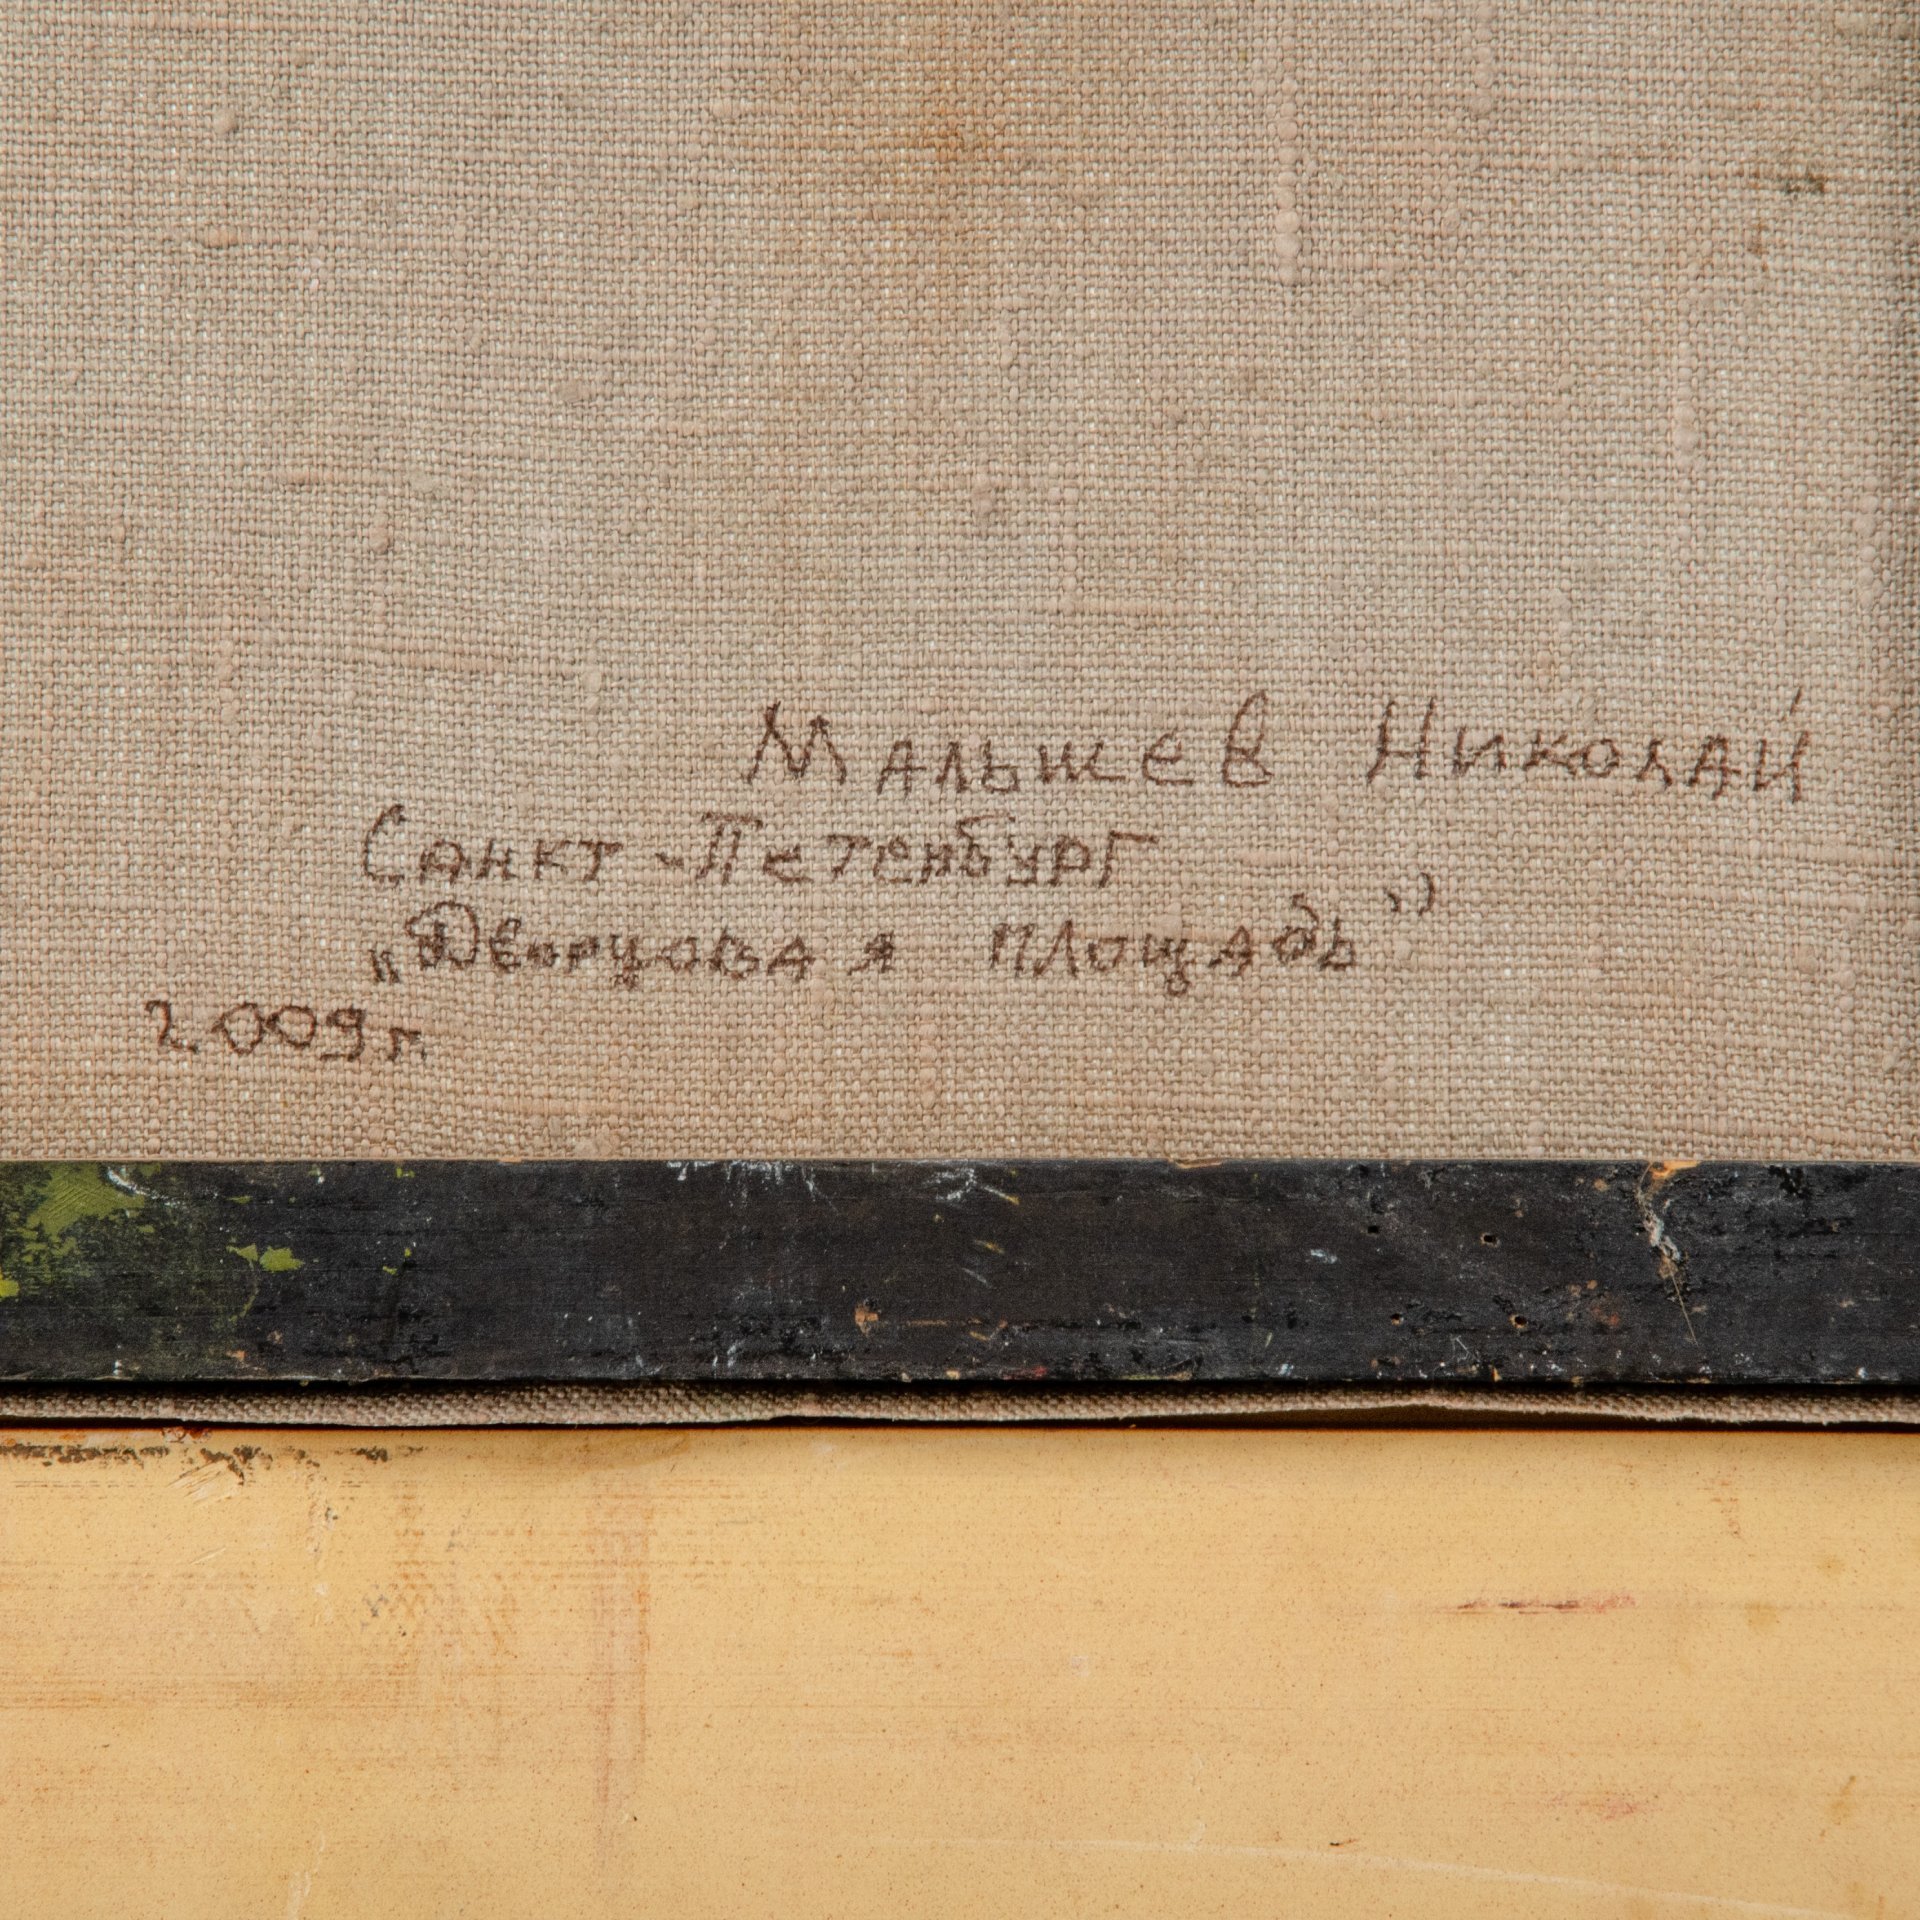 Малышев Николай
Санкт-Петербург
„Дворцовая площадь”
2009г.